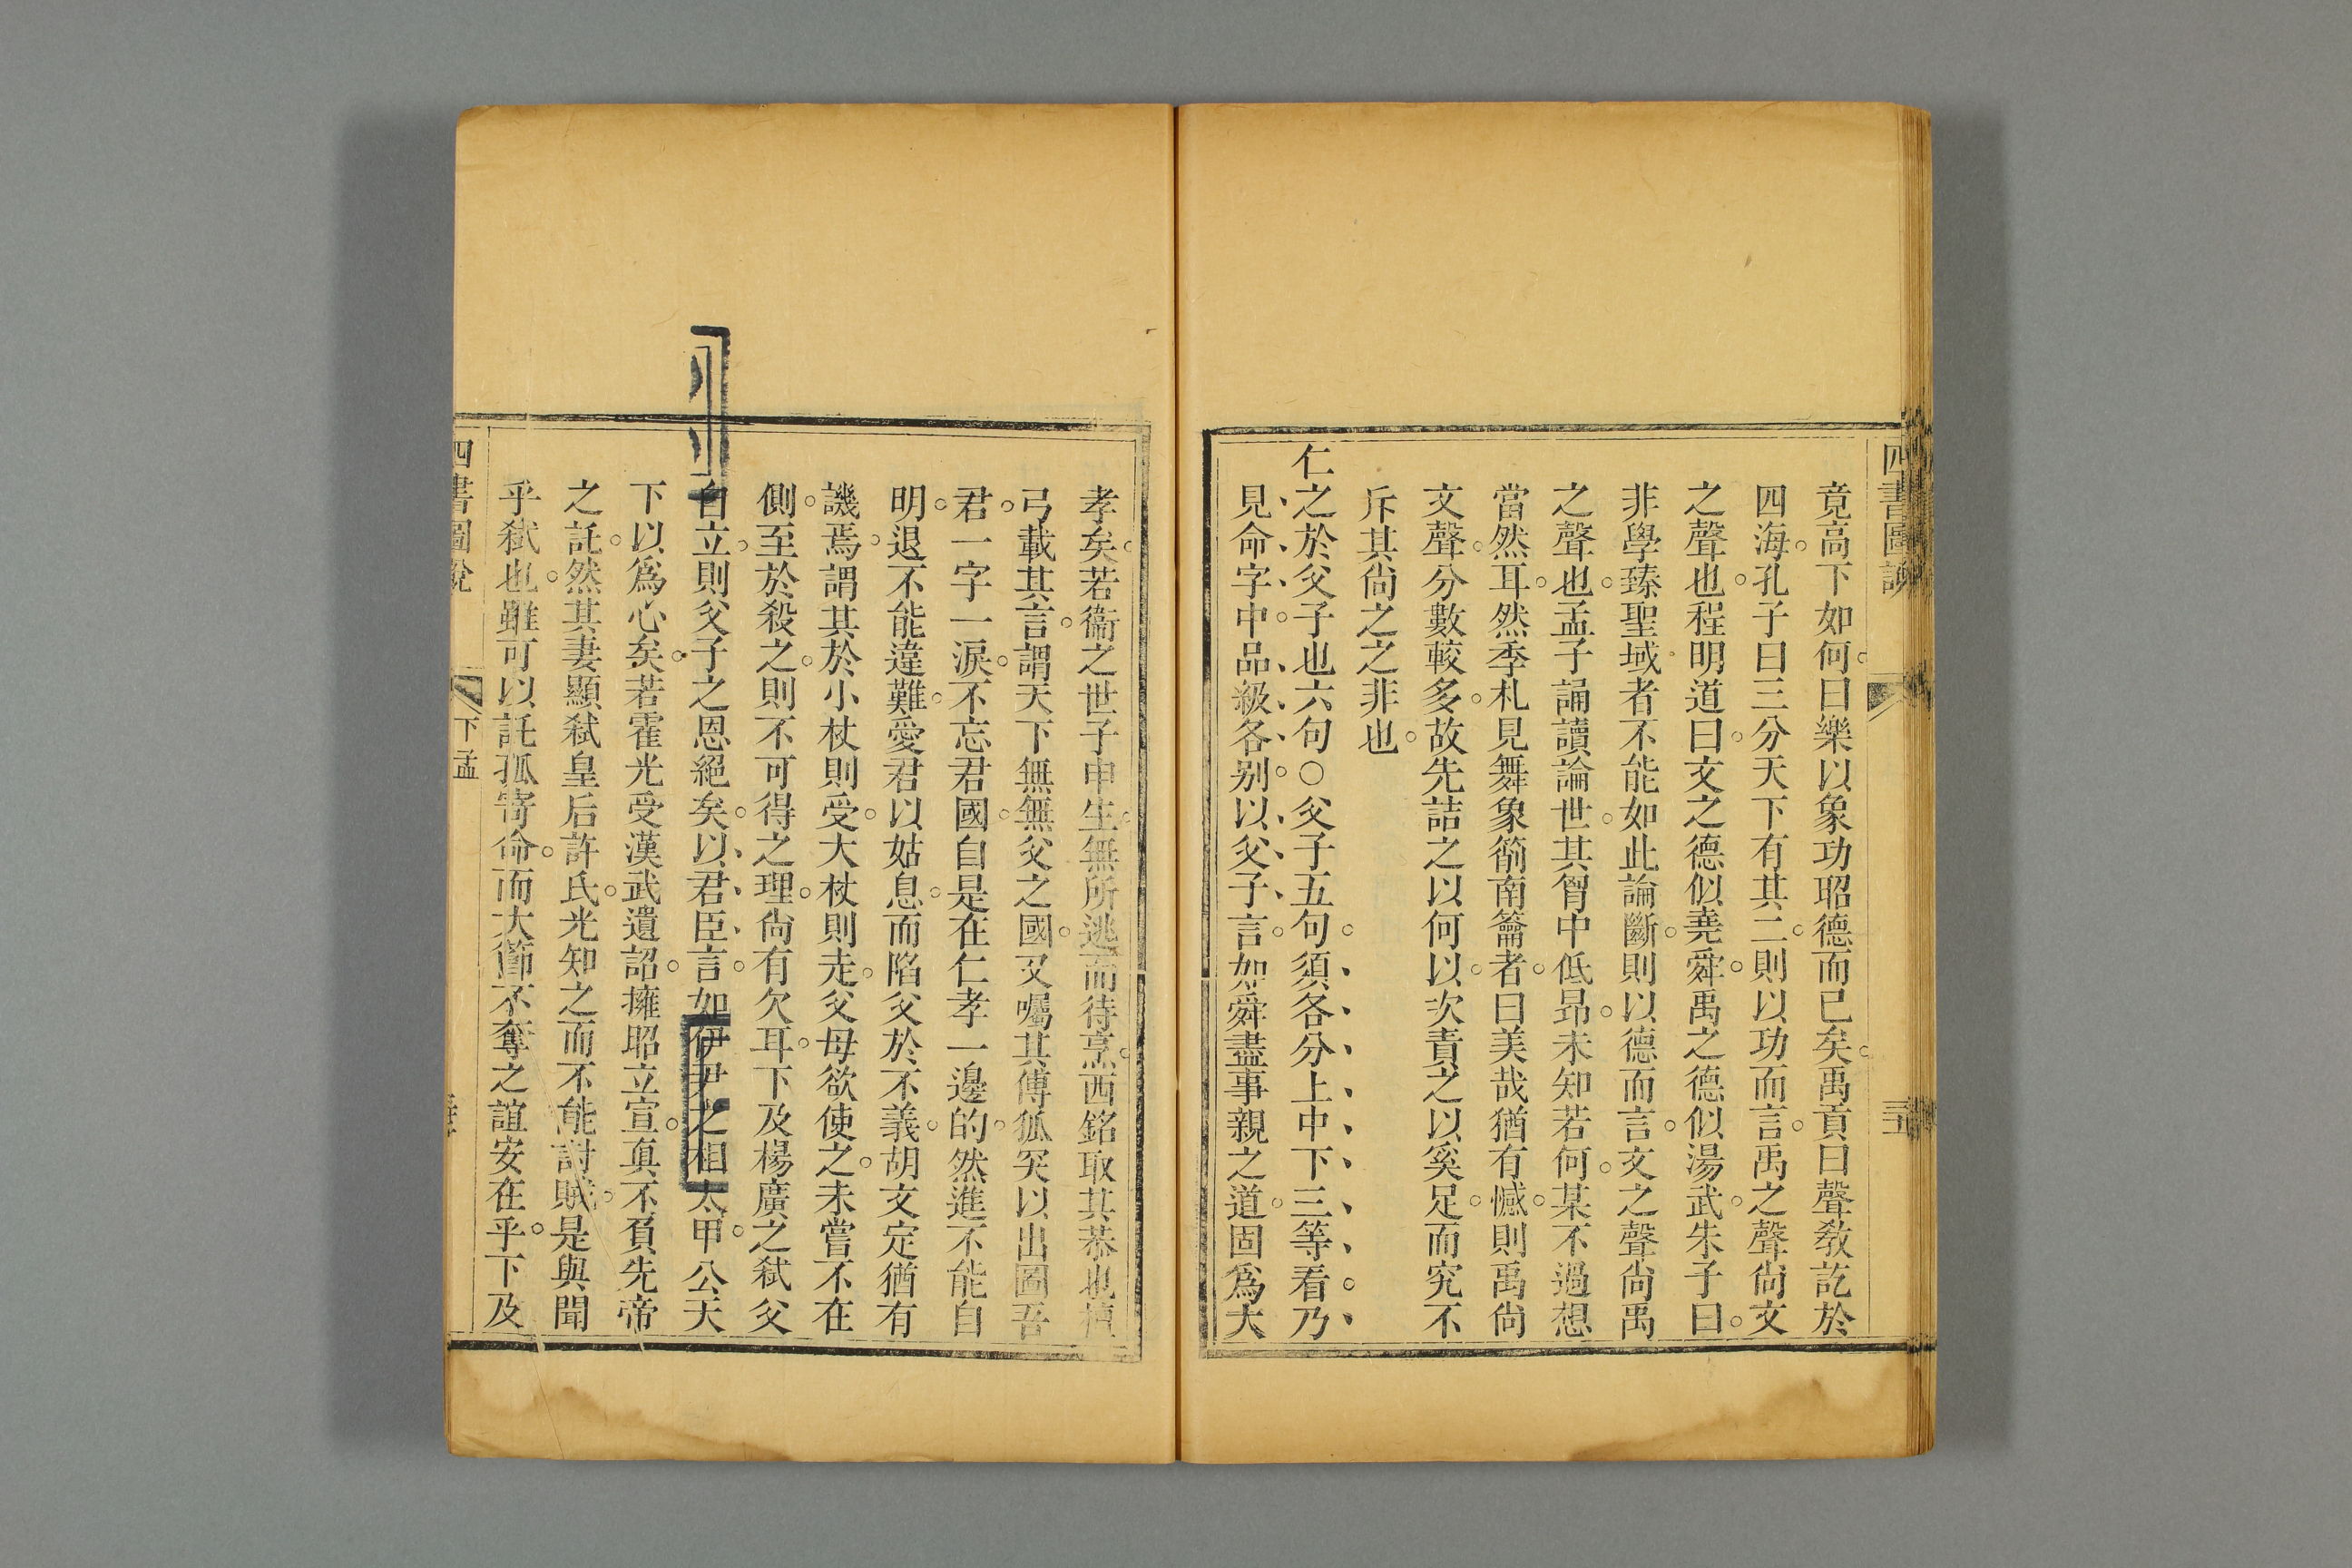 四書圖說
三五
竟高下如何曰樂以象功昭德而已矣禹貢曰聲敎訖於
四海孔子曰三分天下有其二則以功而言禹之聲尙文
之聲也程明道曰文之德似堯舜禹之德似湯武朱子曰
非學臻聖域者不能如此論斷則以德而言文之聲尙禹
之聲也孟子誦讀論世其胷中低昂未知若何某不過想
當然耳然季札見舞象箾南籥者曰美哉猶有憾則禹尙
文聲分數較多故先詰之以何以次責之以奚足而究不
斥其尙之之非也
仁之於父子也六句○父子五句須各分上中下三等看乃
見命字中品級各别以父子言如舜盡事親之道固爲大
孝矣若衞之世子申生無所逃而待烹西銘取其恭也檀
弓載其言謂天下無無父之國又囑其傅狐突以出圖吾
君一字一淚不忘君國自是在仁孝一邊的然進不能自
明退不能違難愛君以姑息而陷父於不義胡文定猶有
譏焉謂其於小杖則受大杖則走父母欲使之未嘗不在
側至於殺之則不可得之理尙有欠耳下及楊廣之弑父
自立則父子之恩絕矣以君臣言如伊尹之相太甲公天
下以爲心矣若霍光受漢武遺詔擁昭立宣眞不負先帝
之託然其妻顯弑皇后許氏光知之而不能討賊是與聞
乎弑也雖可以託孤寄命而大節不奪之誼安在乎下及
四書圖說
下孟